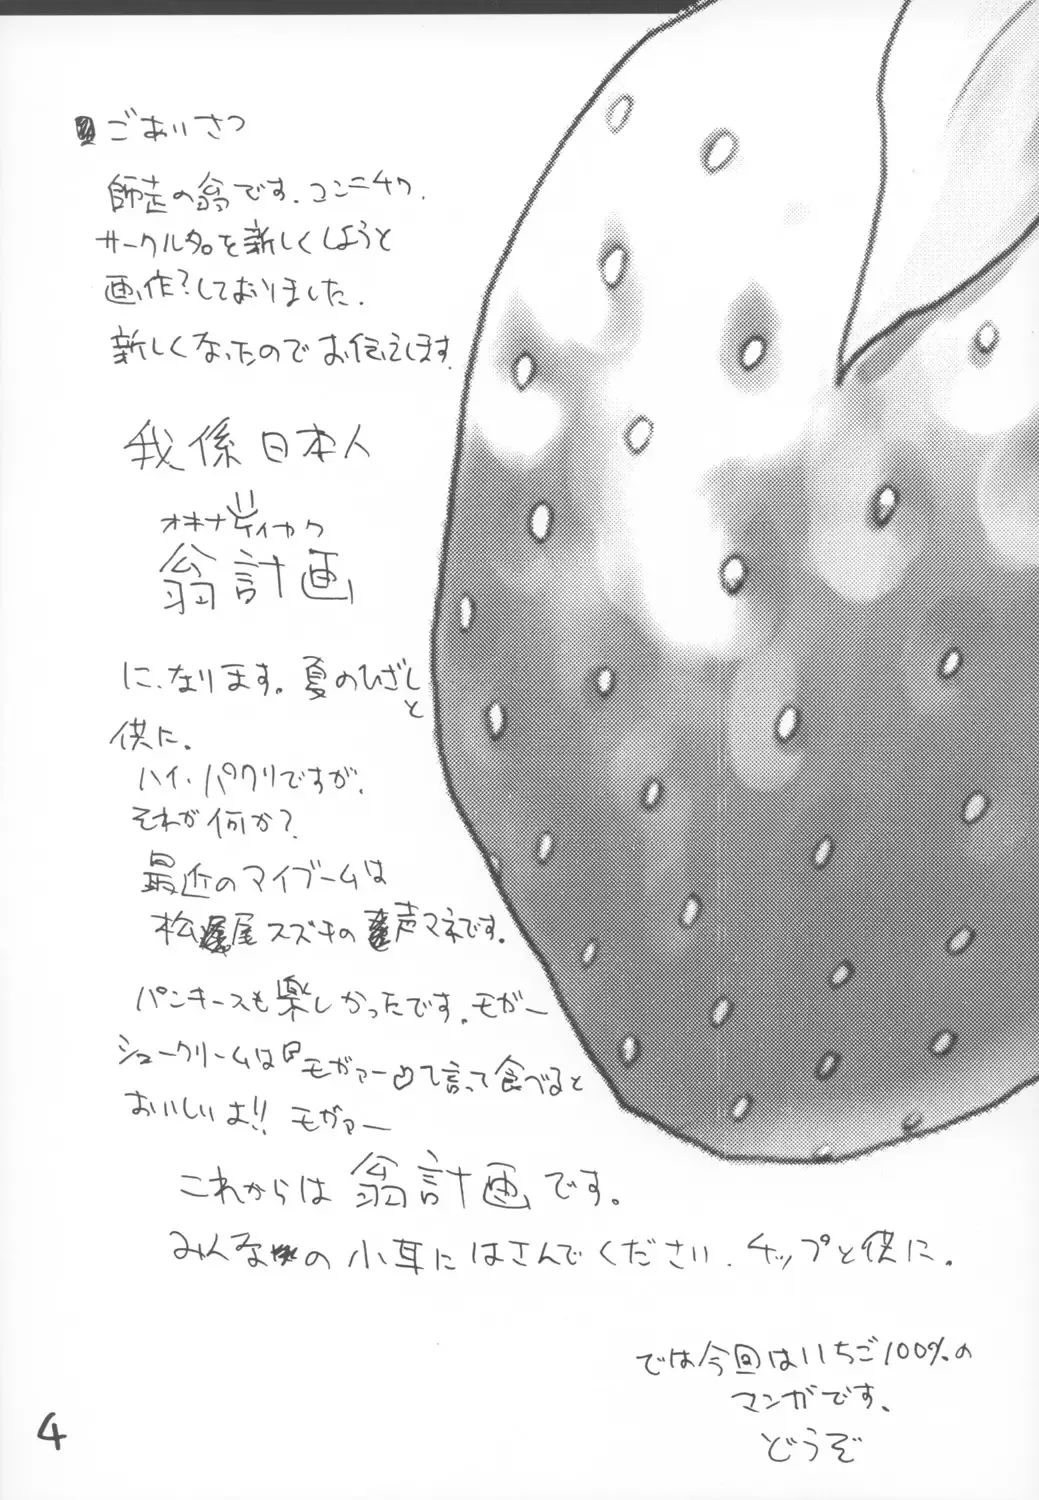 ごあいさつ
師走の翁です。コンニチワ.
サークル名を新しくしようと
画作?しておりました.
新しくなったのでお伝えします.
我係日本人
オキナ ケイカク
翁計画
に、なります。夏のひざしと
供に。
ハイ、パクリですが、
それが何か?
最近のマイブームは
松尾スズキの声マネです。
パンキースも楽しかったです。モガー
シュークリームは『モガァー』て言って食べると
おいしいよ!! モガァー
これからは 翁計画です。
みんなの小耳にはさんでください. チップと供に。
では今回はいちご100%の
マンガです、
どうぞ
4